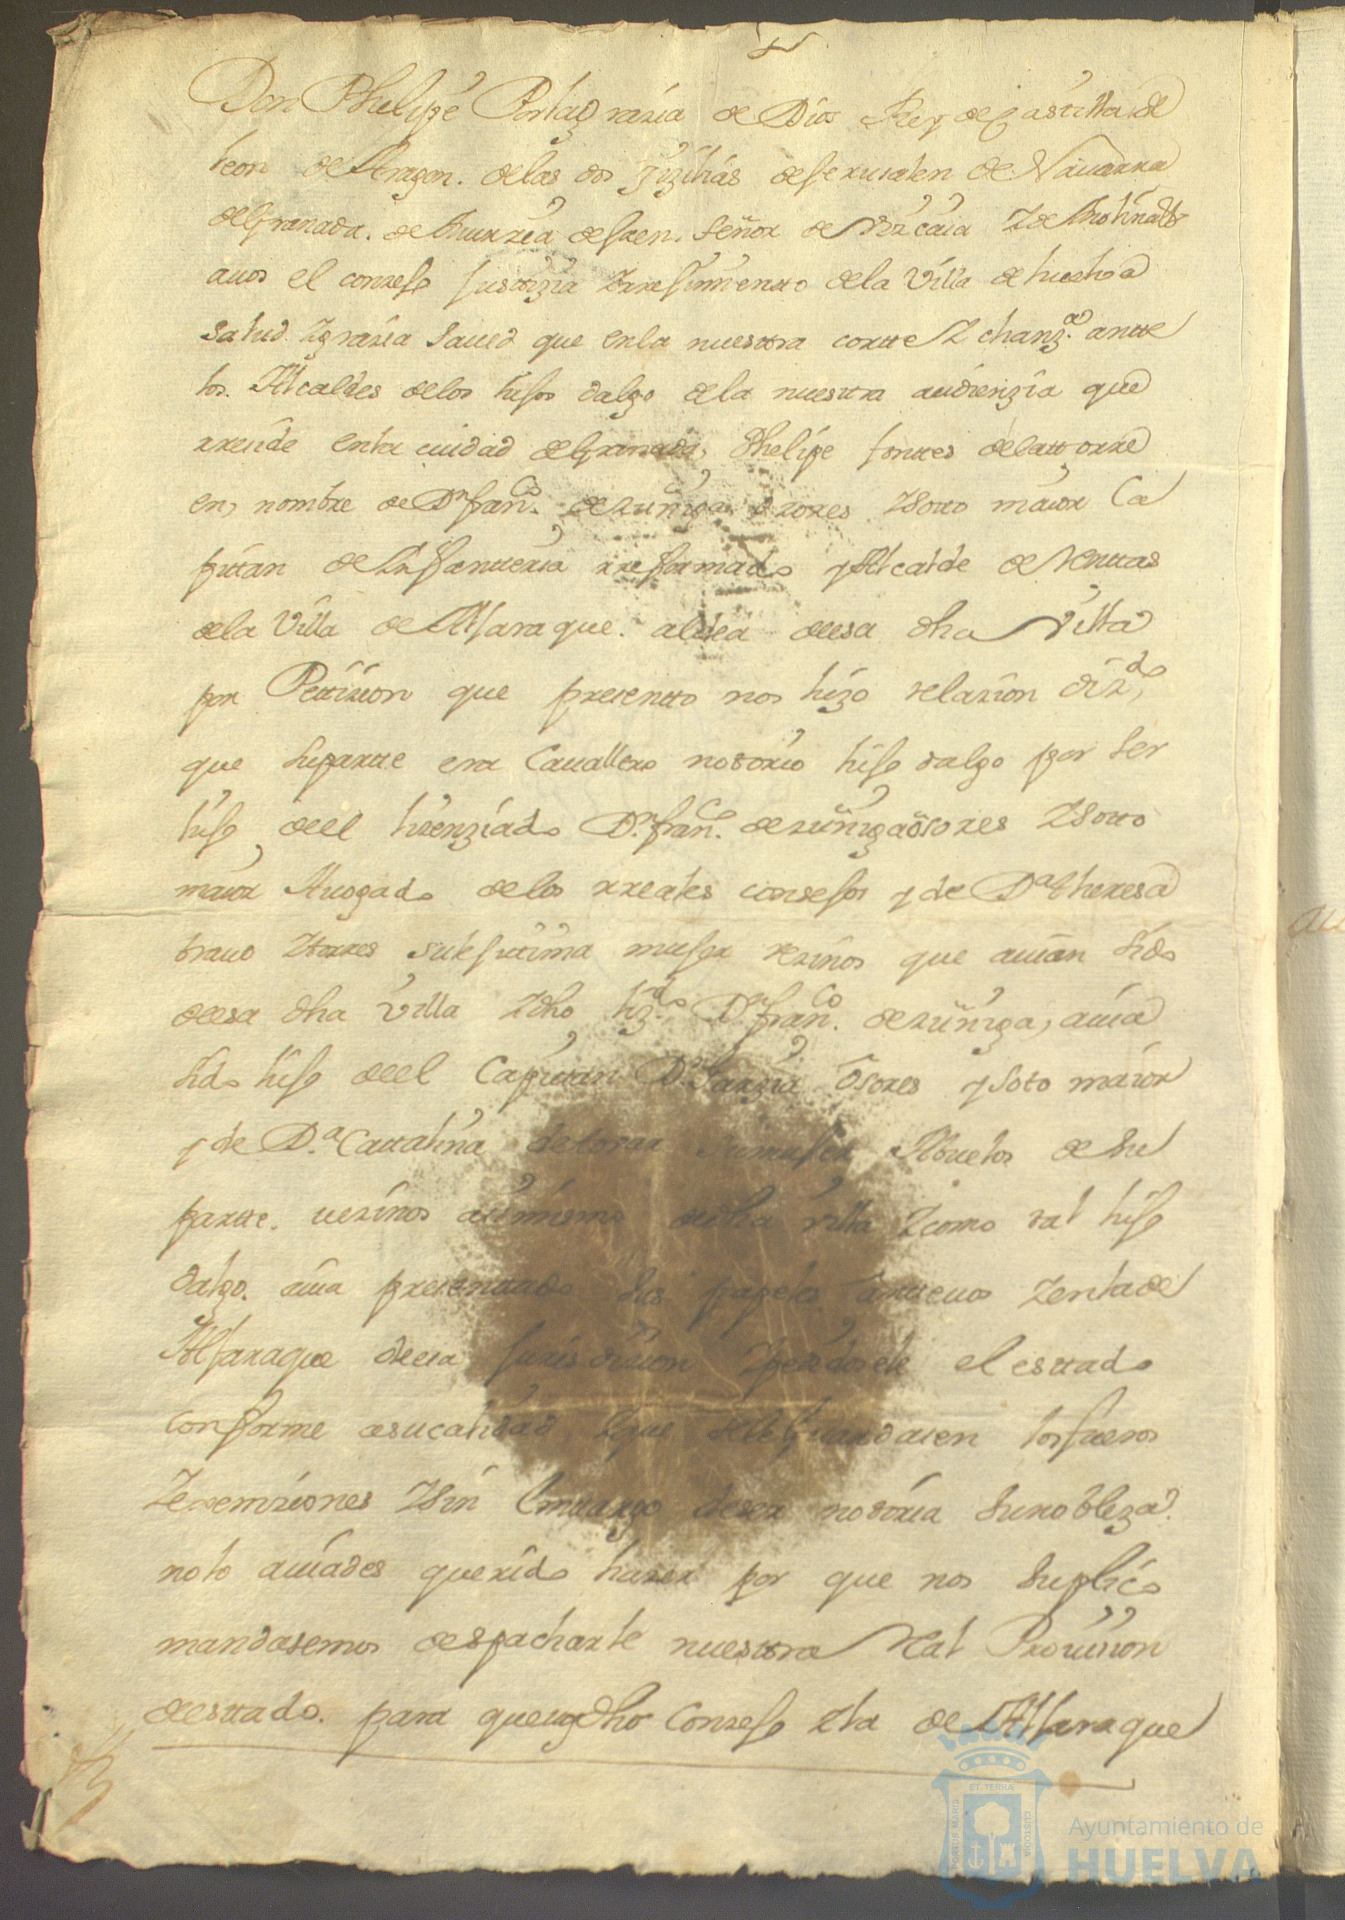 Don Phelipe Por la grazia de Dios Rey de Castilla de
leon de Aragon. de las dos sizilias de Jerusalen de Navarra
de Granada. de Murzia de Jaen. Señor de Vizcaia Z de Molina &
auos el consejo Justizia Z rrejimientto de la Villa de huelva
salud Z grazia Saued que en la nuestra cortte Z chanz.ª antte
los Alcaldes de los hijos dalgo de la nuestra audienzia que
rreside en la ciudad de Granada, Phelipe fonttes de la ttorre
en nombre de Dn franco. de zuñiga osores Z Sotto maior Ca
pittan de Ynfantteria rreformado y Alcalde de Senttas
de la Villa de Aljaraque. aldea de esa dha Villa
por Pettizion que presentto nos hizo relazion dizdo,
que su partte era Cauallero nottorio hijo dalgo por ser
hijo de el lizenziado Dn. franco. de zuñiga osores Z Sotto
maior Auogado de los rreales consejos y de Dª theresa
brauo Z torres su lejittima mujer vezinos que auian sido
de esa dha Villa Z dho lizdo Dn franco. de zuñiga, auia
sido hijo de el Capittan Dn Garzia osores y Soto maior
y de D.ª Cattalina de touar su mujer Abuelos de su
partte. uezinos asimismo de dha villa Z como tal hijo
dalgo. auia presenttado sus papeles antte uos Z en la de
Aljaraque de esa jurisdizion Z pedidosele el esttado
conforme a su calidad, Z que se le guardasen los fueros
Z esempziones Z Sin Embargo de ser nottoria su nobleza.
no lo auiades querido hazer por que nos Suplico
mandasemos despacharle nuestra Real Prouision
de esttado. para que uos dho Consejo Z la de Aljaraque
PORTUS MARIS
ET TERRÆ
CUSTODIA
Ayuntamiento de
HUELVA